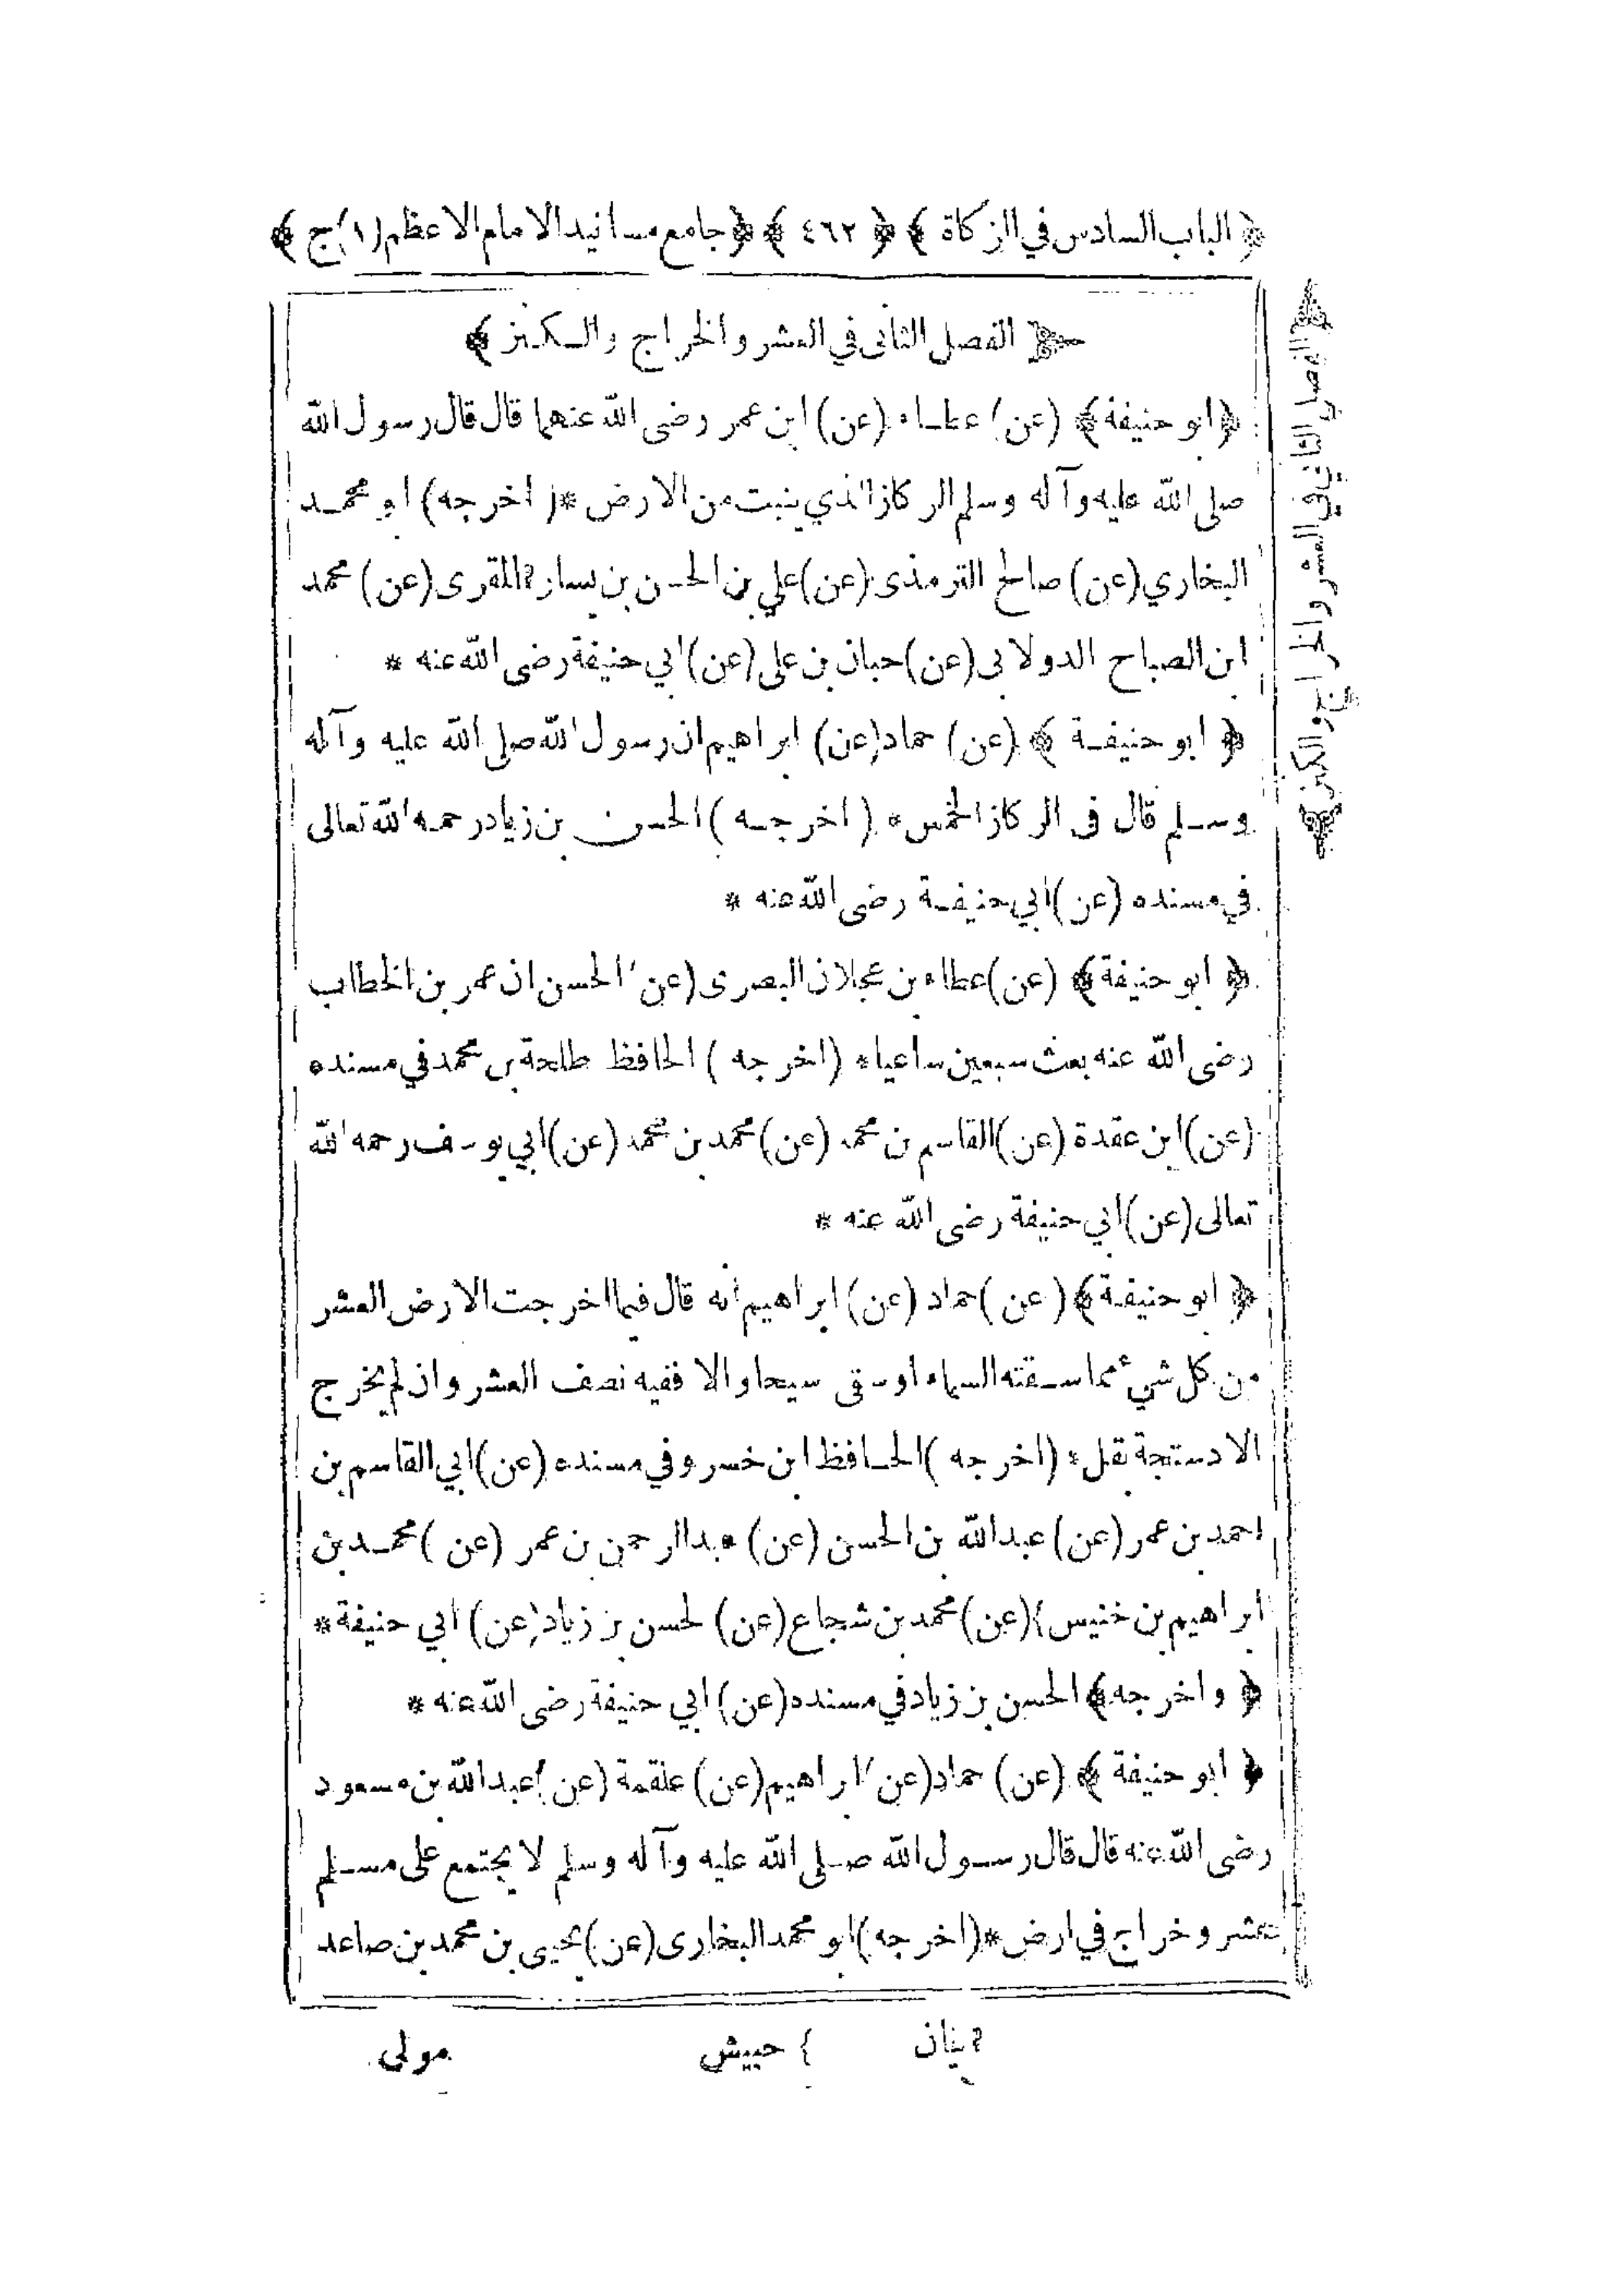 ﴿ الباب السادس في الزكاة ﴾ ﴿ ٤٦٢ ﴾ ﴿ جامع مسانيد الامام الاعظم (١) ج ﴾
الفصل الثاني في العشر والخراج والكنز ﴾
﴿ ابو حنيفة ﴾ (عن) عطاء (عن) ابن عمر رضى الله عنهما قال قال رسول الله
صلى الله عليه وآله وسلم الركاز الذي ينبت من الارض * (اخرجه) ابو محمد
البخاري (عن) صالح الترمذى (عن) علي بن الحسن بن بسار ٢ المقرى (عن) محمد
ابن الصباح الدولابى (عن) حبان بن على (عن) ابي حنيفة رضى الله عنه *
﴿ ابو حنيفة ﴾ (عن) حماد (عن) ابراهيم ان رسول الله صلى الله عليه وآله
وسلم قال فى الركاز الخمس * (اخرجه) الحسن بن زياد رحمه الله تعالى
في مسنده (عن) ابي حنيفة رضى الله عنه *
﴿ ابو حنيفة ﴾ (عن) عطاء بن عجلان البصرى (عن) الحسن ان عمر بن الخطاب
رضى الله عنه بعث سبعين ساعيا * (اخرجه) الحافظ طلحة بن محمد في مسنده
(عن) ابن عقدة (عن) القاسم بن محمد (عن) محمد بن محمد (عن) ابي يوسف رحمه الله
تعالى (عن) ابي حنيفة رضى الله عنه *
﴿ ابو حنيفة ﴾ (عن) حماد (عن) ابراهيم انه قال فيما اخرجت الارض العشر
من كل شيء مما سقته السماء او سقى سيحا والا ففيه نصف العشر وان لم يخرج
الا دستجة بقل * (اخرجه) الحافظ ابن خسرو في مسنده (عن) ابي القاسم بن
احمد بن عمر (عن) عبدالله بن الحسن (عن) عبدالرحمن بن عمر (عن) محمد بن
ابراهيم بن خنيس } (عن) محمد بن شجاع (عن) الحسن بن زياد (عن) ابي حنيفة *
﴿ واخرجه ﴾ الحسن بن زياد في مسنده (عن) ابي حنيفة رضى الله عنه *
﴿ ابو حنيفة ﴾ (عن) حماد (عن) ابراهيم (عن) علقمة (عن) عبدالله بن مسعود
رضى الله عنه قال قال رسول الله صلى الله عليه وآله وسلم لا يجتمع على مسلم
عشر وخراج في ارض * (اخرجه) ابو محمد البخارى (عن) يحيى بن محمد بن صاعد
٢ بنان } حبيش مولى
الفصل الثاني في العشر والخراج والكنز